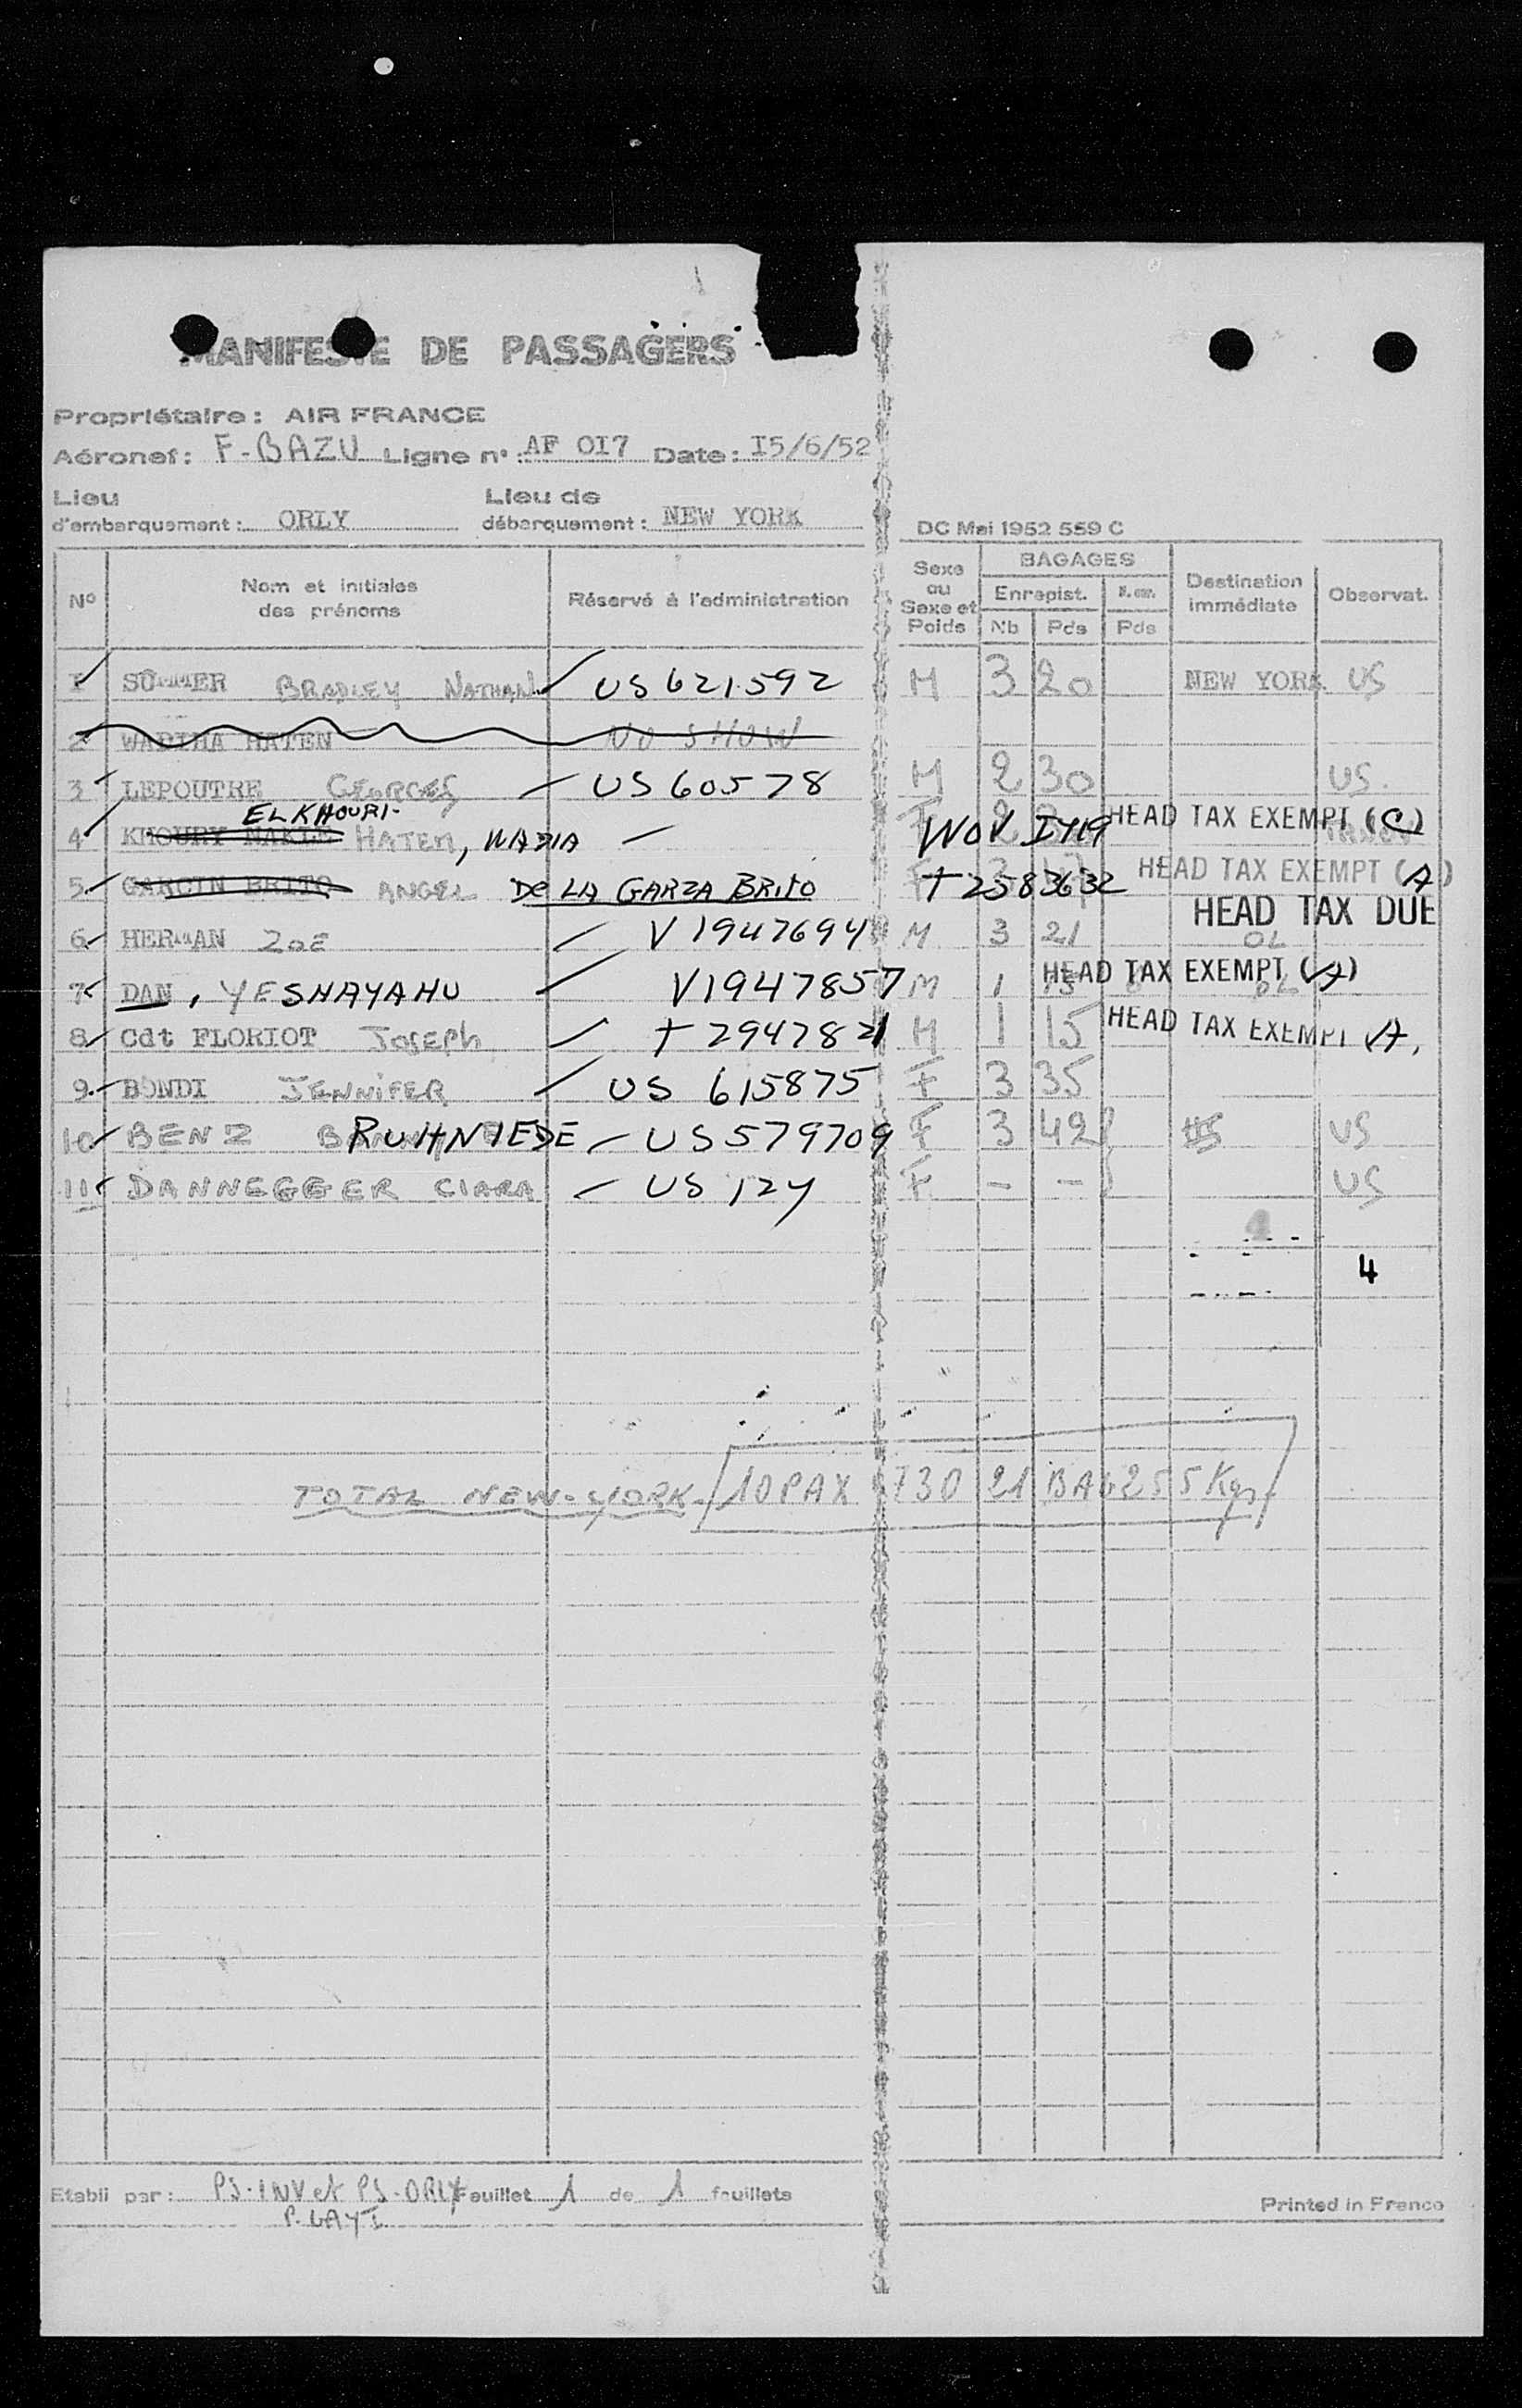 MANIFESTE DE PASSAGERS
Propriétaire : AIR FRANCE
Aéronef : F-BAZU Ligne n° : AF OI7 Date : I5/6/52
Lieu d'embarquement : ORLY Lieu de débarquement : NEW YORK
DC Mai 1952 559 C
N° Nom et initiales des prénoms Réservé à l'administration Sexe ou Sexe et Poids BAGAGES Enregist. Nb Pds Pds Destination immédiate Observat.
1 SUMMER BRADLEY NATHAN US 621592 M 3 20 NEW YORK US
2 WADIHA HATEN NO SHOW
3 LEPOUTRE GEORGES US 60578 M 2 30 US
EL KHOURI-
4 KHOURY NAKLE HATEM, WADIA F 2 HEAD TAX EXEMPT (C)
5 GARCIN BRITO ANGEL De LA GARZA BRITO T 2583632 HEAD TAX EXEMPT (A)
HEAD TAX DUE
6 HERMAN ZOE V 1947694 M 3 21
7 DAN, YESHAYAHU V1947857 M 1 15 HEAD TAX EXEMPT (A)
8 Cdt FLORIOT JOSEPH T 2947821 M 1 15 HEAD TAX EXEMPT A
9 BONDI JENNIFER US 615875 F 3 35
10 BENZ RUHNIEDE US 579709 F 3 42 US US
11 DANNEGGER CIARA US 124 F - - US
4
TOTAL NEW-YORK 10 PAX 730 21 BAG 255 Kgs
Etabli par : PS-INV et PS-ORLY Feuillet 1 de 1 feuillets
Printed in France